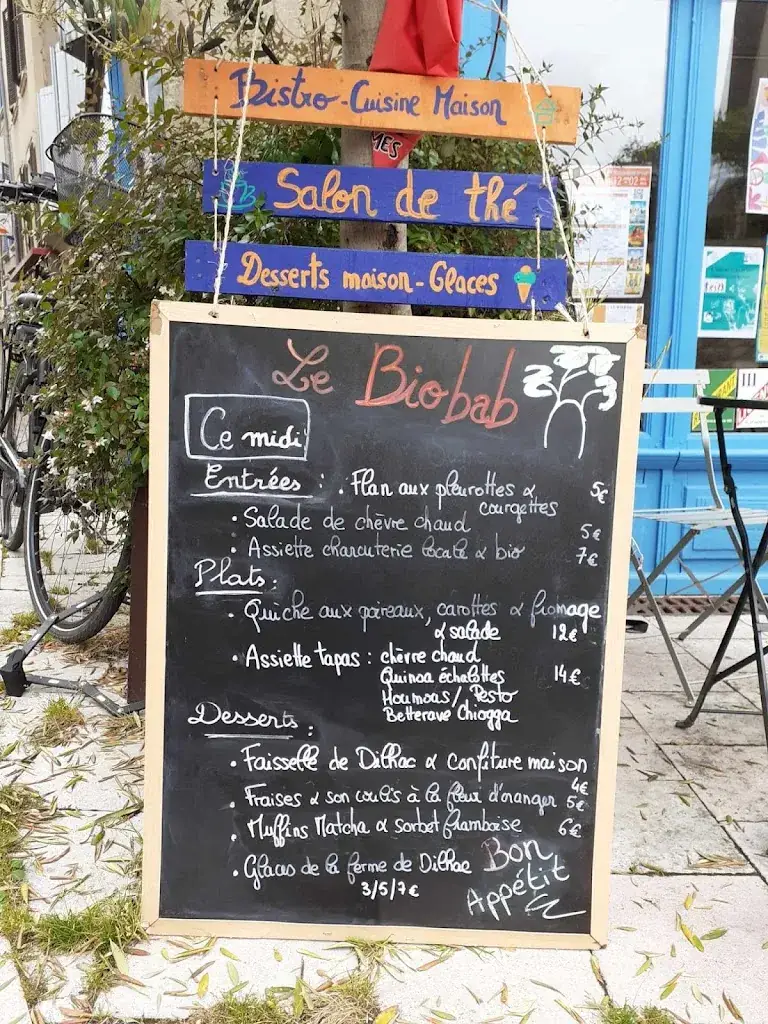 Bistro-Cuisine Maison
MES
Salon de thé
Desserts maison-Glaces
Le Biobab
Ce midi
Entrées : . Flan aux pleurottes & 5€
courgettes
• Salade de chèvre chaud 5€
• Assiette charcuterie locale & bio 7€
Plats :
• Quiche aux poireaux, carottes & fromage
& salade 12€
• Assiette tapas : chèvre chaud
Quinoa échalottes 14€
Houmoas / Pesto
Betterave Chiogga
Desserts :
• Faisselle de Dilhac & confiture maison
4€
• Fraises & son coulis à la fleur d'oranger 5€
• Muffins Matcha & sorbet framboise 6€
• Glaces de la ferme de Dilhac
3/5/7€
Bon
Appétit